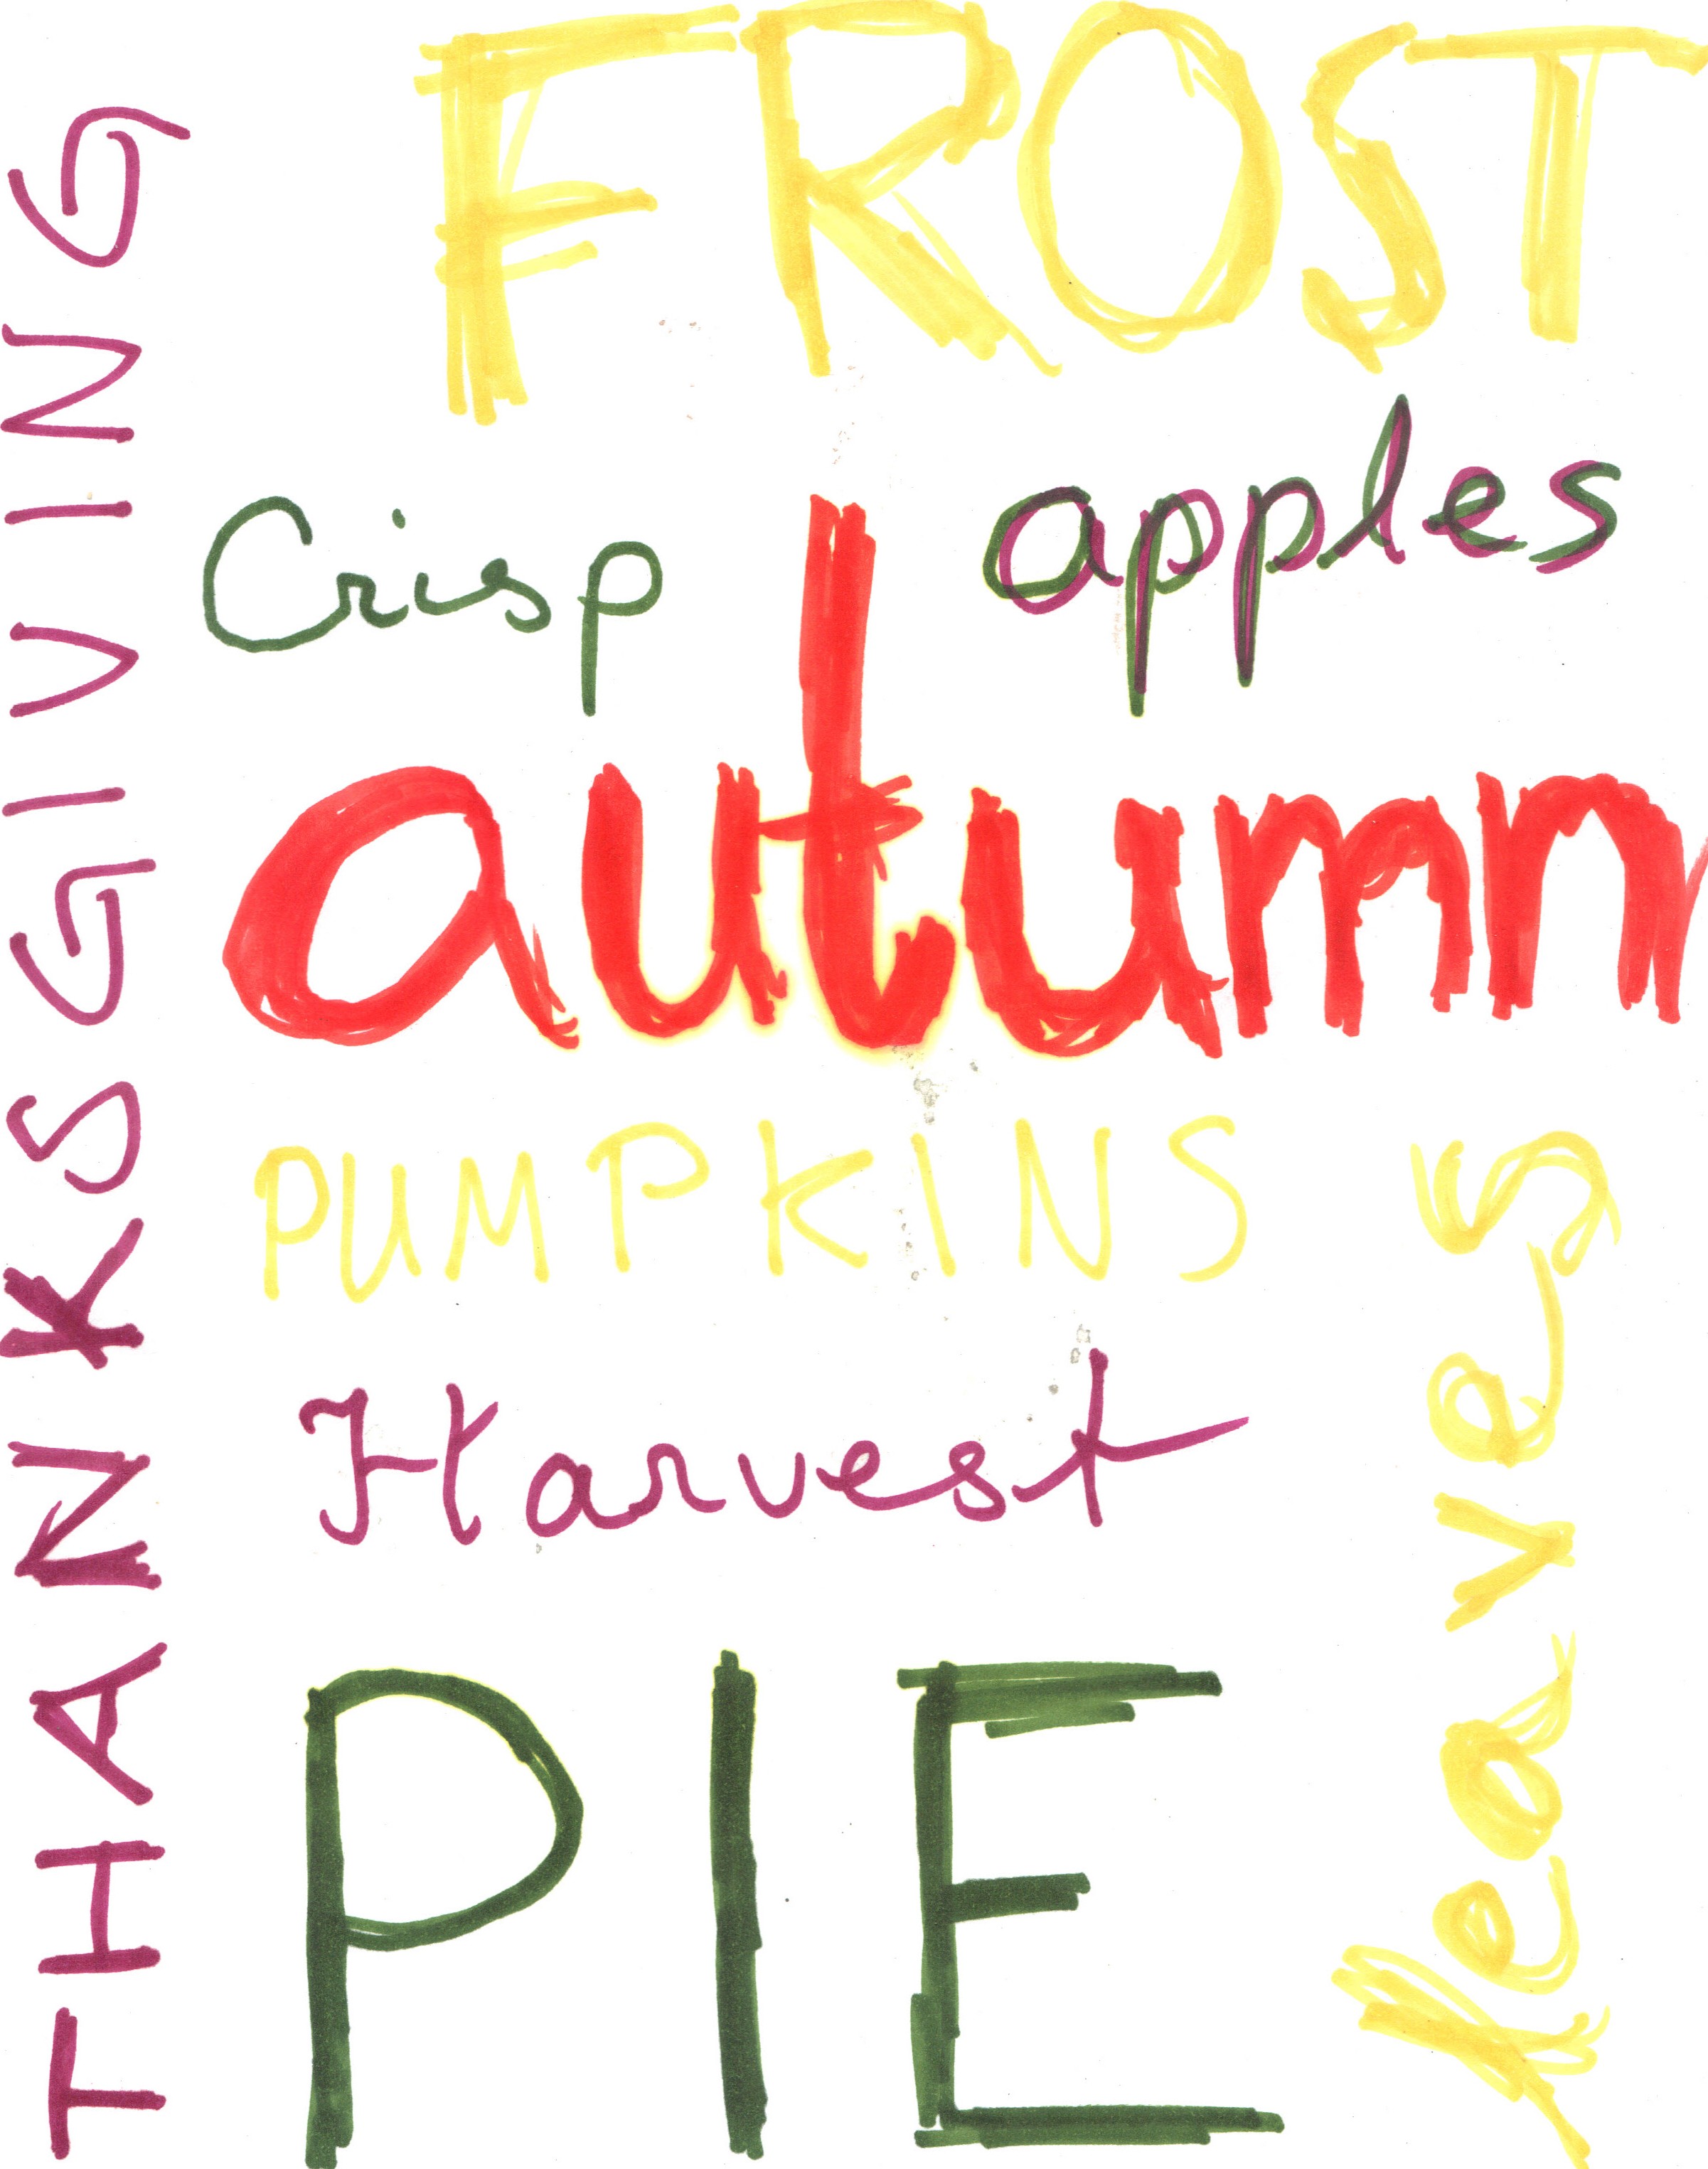 THANKSGIVING
FROST
Crisp apples
autumn
PUMPKINS
Harvest
leaves
PIE